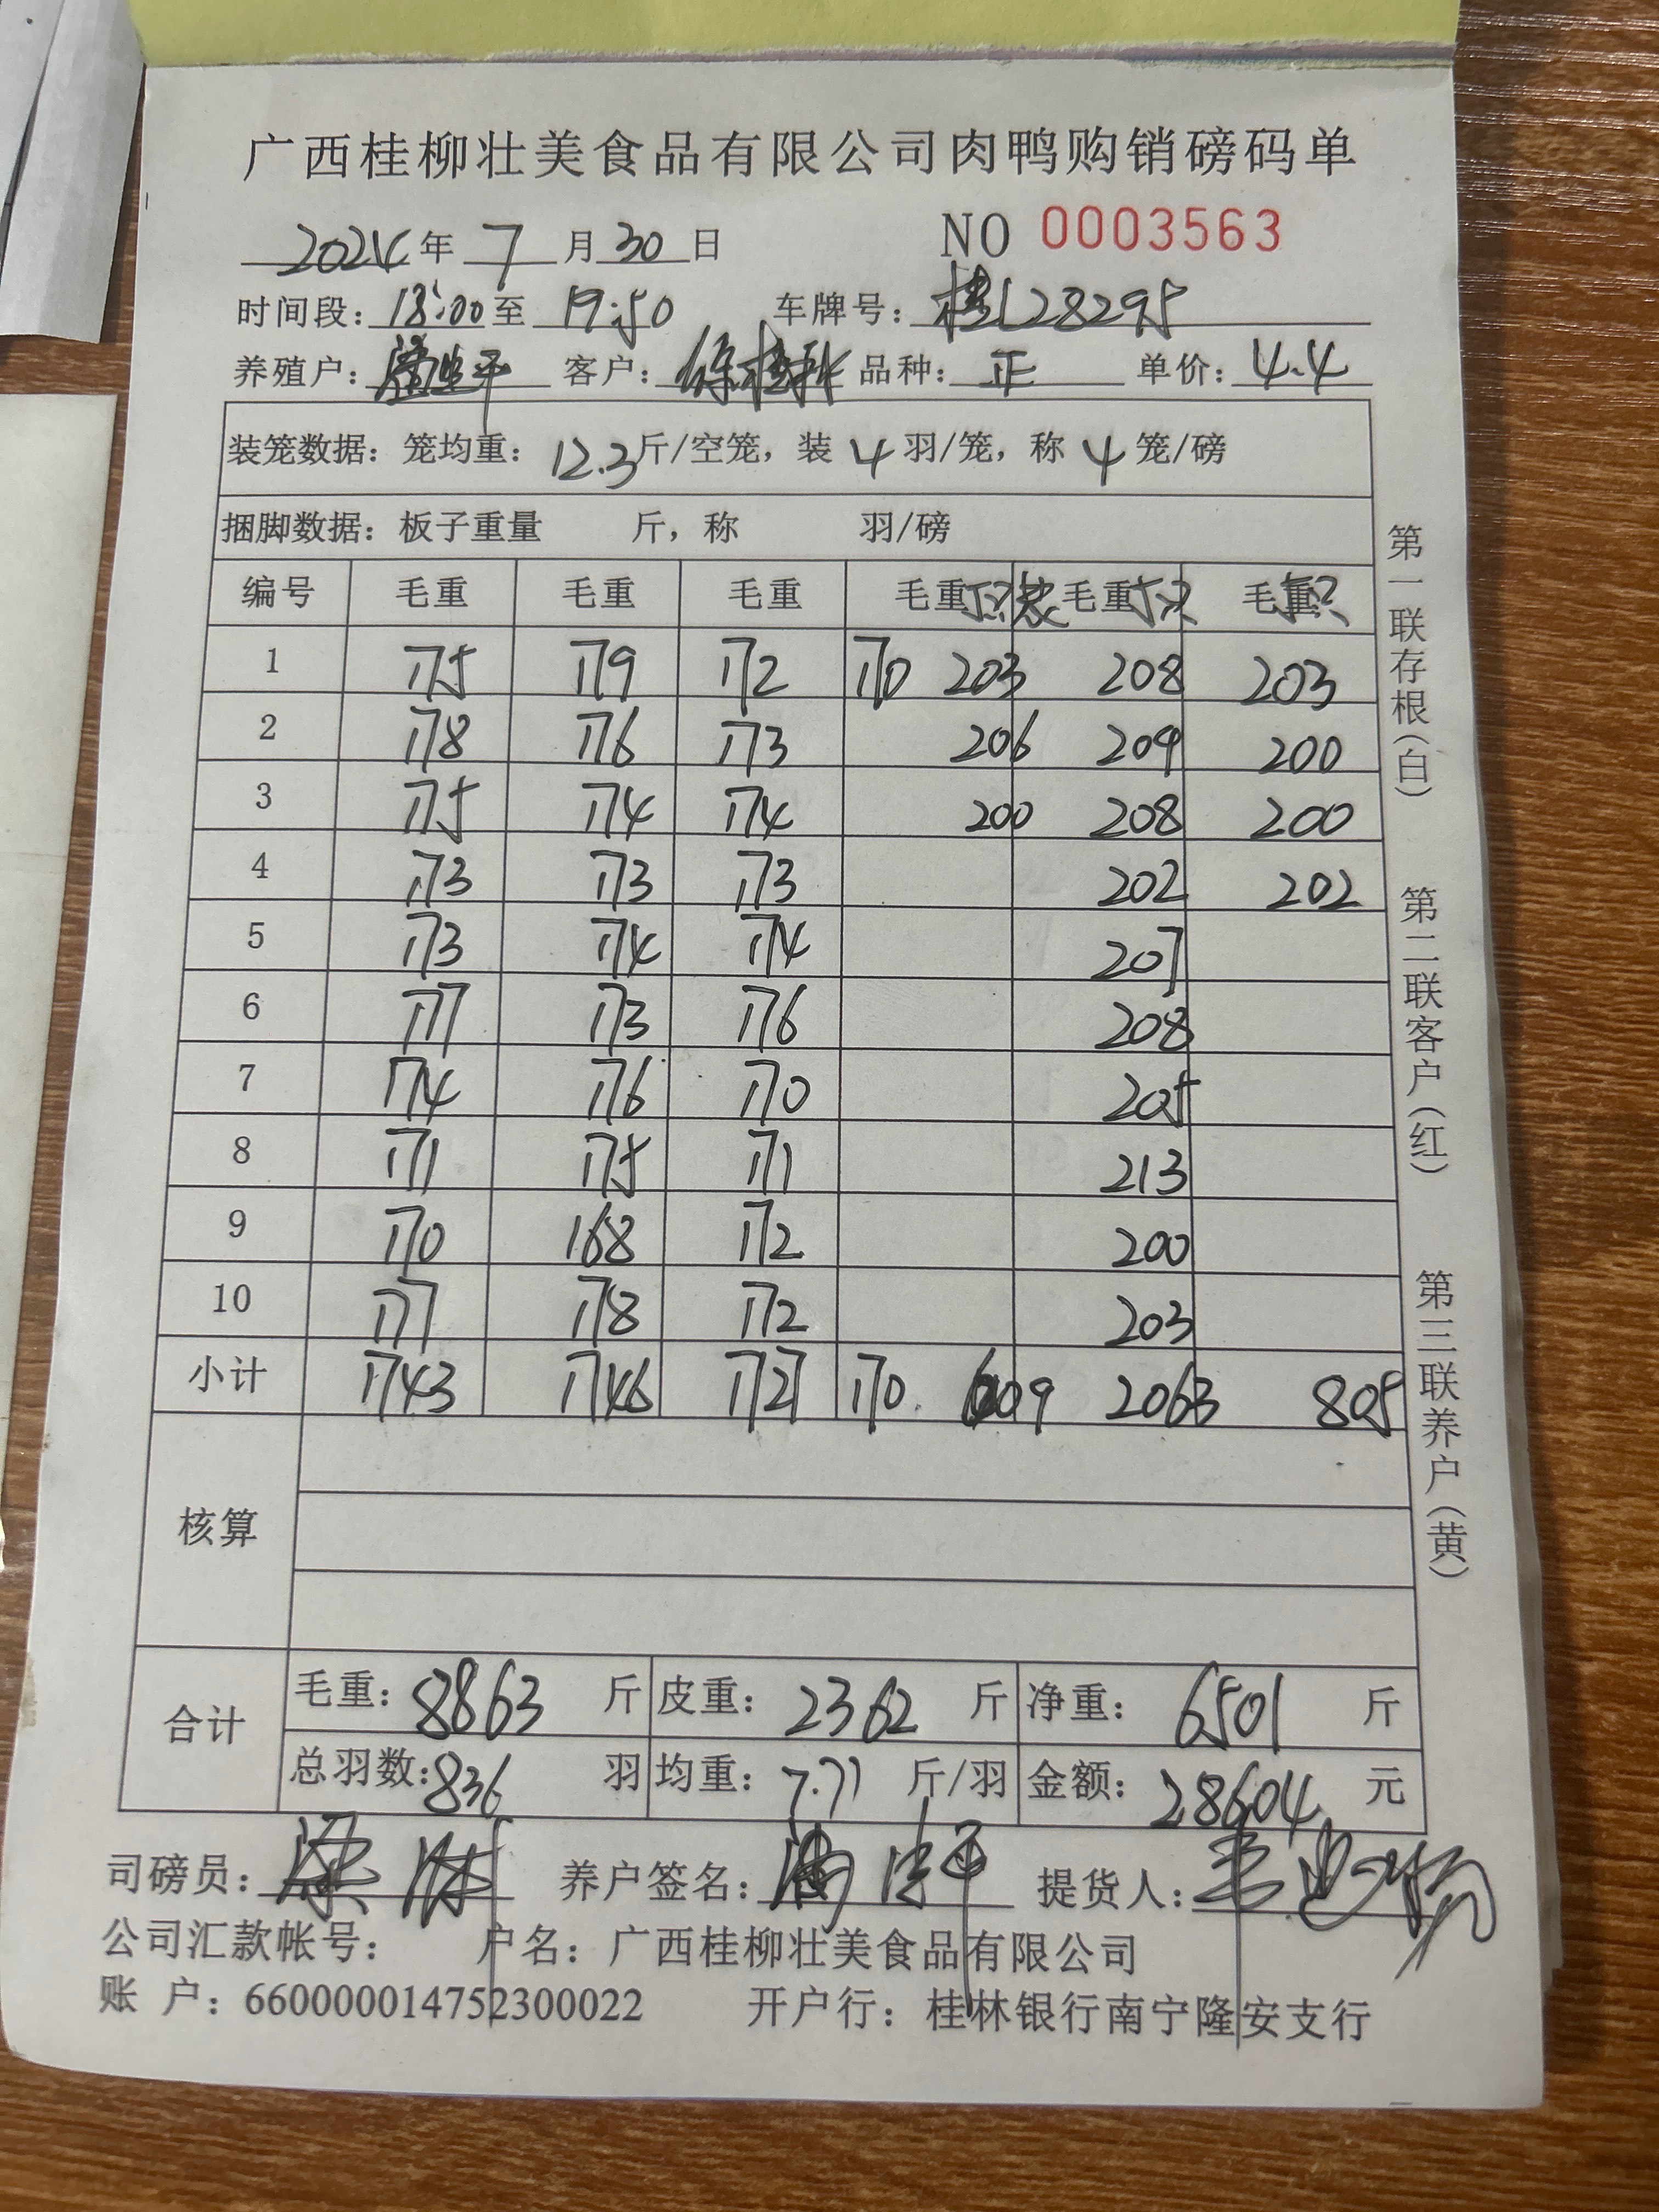 广西桂柳壮美食品有限公司肉鸭购销磅码单
2024年 7 月 30 日 NO 0003563
时间段：18:00 至 19:50 车牌号：桂L28295
养殖户： 客户：徐桂秋 品种：正 单价：4.4
装笼数据：笼均重：12.3斤/空笼，装 4 羽/笼，称 4 笼/磅
捆脚数据：板子重量 斤，称 羽/磅
编号 毛重 毛重 毛重 毛重 毛重 毛重
1 175 179 172 170 203 208 203
2 178 176 173 206 209 200
3 175 174 174 200 208 200
4 173 173 173 202 202
5 173 174 174 207
6 177 173 176 208
7 174 176 170 205
8 171 175 171 213
9 170 168 172 200
10 177 178 172 203
小计 1743 1746 1727 170 609 2063 805
核算
合计 毛重：8863 斤 皮重：2362 斤 净重：6501 斤
总羽数：836 羽 均重：7.71 斤/羽 金额：28604 元
司磅员： 养户签名： 提货人：
公司汇款帐号： 户名：广西桂柳壮美食品有限公司
账 户：660000014752300022 开户行：桂林银行南宁隆安支行
第一联存根（白） 第二联客户（红） 第三联养户（黄）